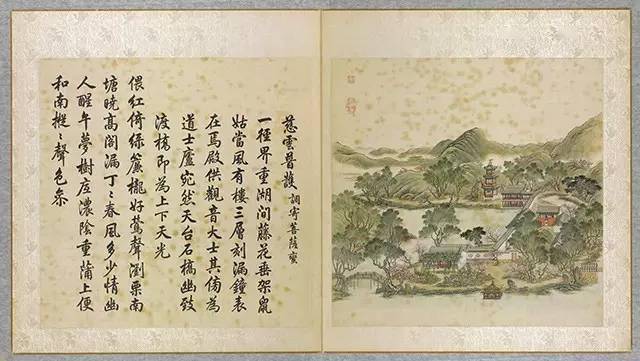 慈雲普護 調寄菩薩蠻
一徑界重湖間藤花垂架鼠
姑當風有樓三層刻漏鐘表
在焉殿供觀音大士其傍為
道士廬宛然天台石橋幽致
渡橋即為上下天光
偎紅倚綠簾櫳好鶯聲瀏栗南
塘曉高閣漏丁〻春風多少情幽
人醒午夢樹底濃陰重蒲上便
和南摐〻聲色參